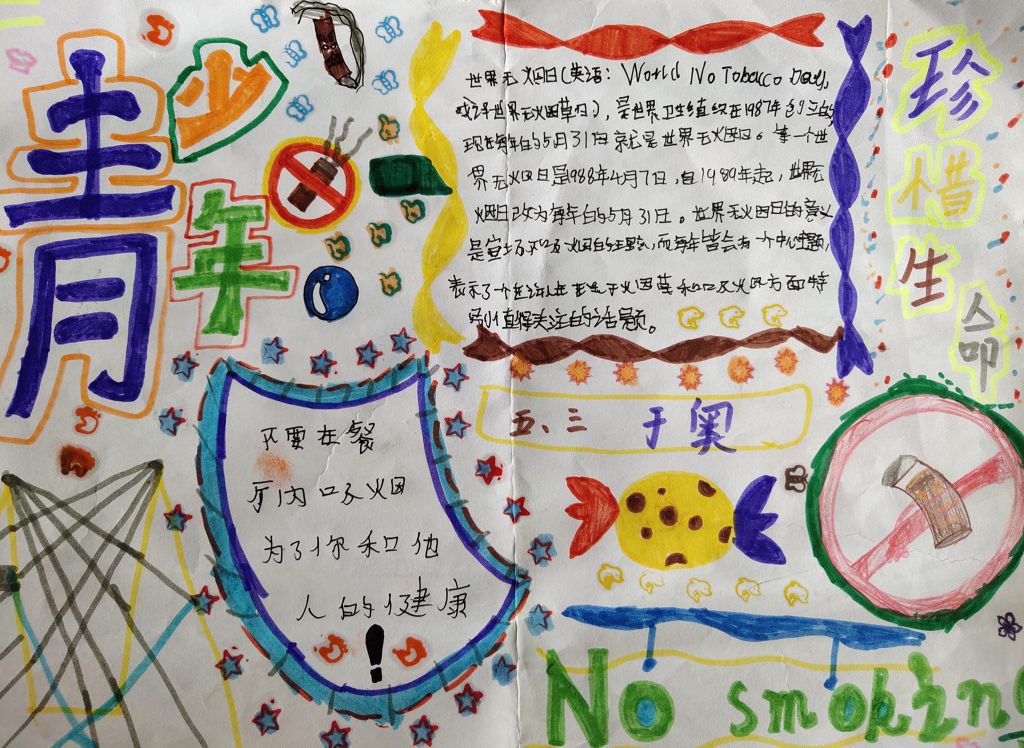 青少年
世界无火因日(英语：World No Tobacco Day,
或译世界无火因草日)，是世界卫生组织在1987年创立的
现在每年的5月31日就是世界无火因日。第一个世
界无火因日是1988年4月7日，自1989年起，世界无
烟日改为每年的5月31日。世界无火因日的意义
是宣扬不口及火因的理念，而每年皆会有一个中心主题，
表示了
火因草和口及火因方面特
别值得关注的话题。
珍惜生命
五、三 于奥
不要在餐
厅内口及火因
为了你和他
人的健康
!
No smoking